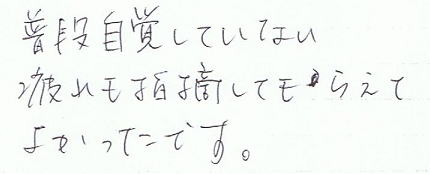 普段自覚していない
疲れも指摘してもらえて
よかったです。